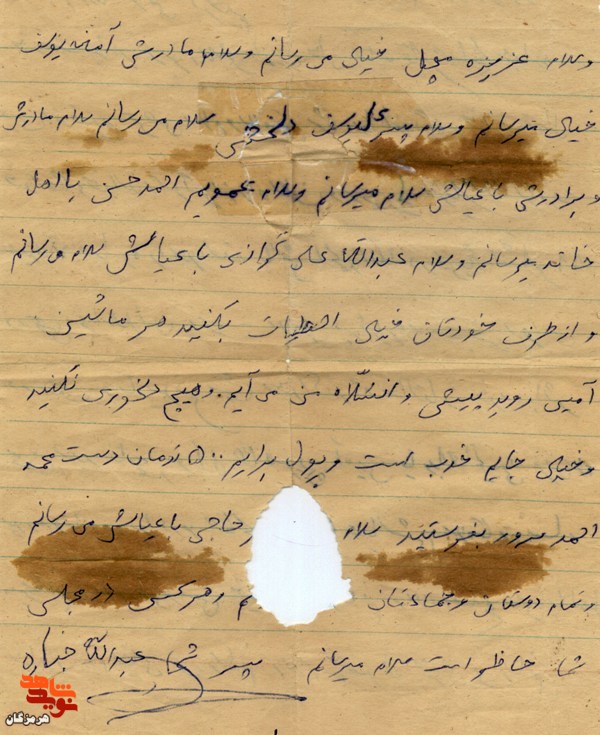 وسلام عزیزه مچل خیلی می رسانم وسلام مادرش آمنه یوسف
خیلی میرسانم وسلام پسر علی یوسف دلخوش سلام می رسانم سلام مادرش
و برادرش با عیالش سلام میرسانم وسلام عمویم احمد حسن با اهل
خانه میرسانم وسلام عبدالله علی با عیالش سلام می رسانم
و از طرف خودتان خیلی بکنید در ماشین
روید پیش و انشلاه من می آیم. و هیچ دلخوری نکنید
و خیلی جایم خوب است و پول برایم ۵۰۰ تومان دست محمد
احمد سرور بفرستید سلام حاجی با عیالش می رسانم
و تمام دوستان و هر کسی در مجلس
شما حاظر است سلام میرسانم پسر شما عبدالله
نوید شاهد
هرمزگان